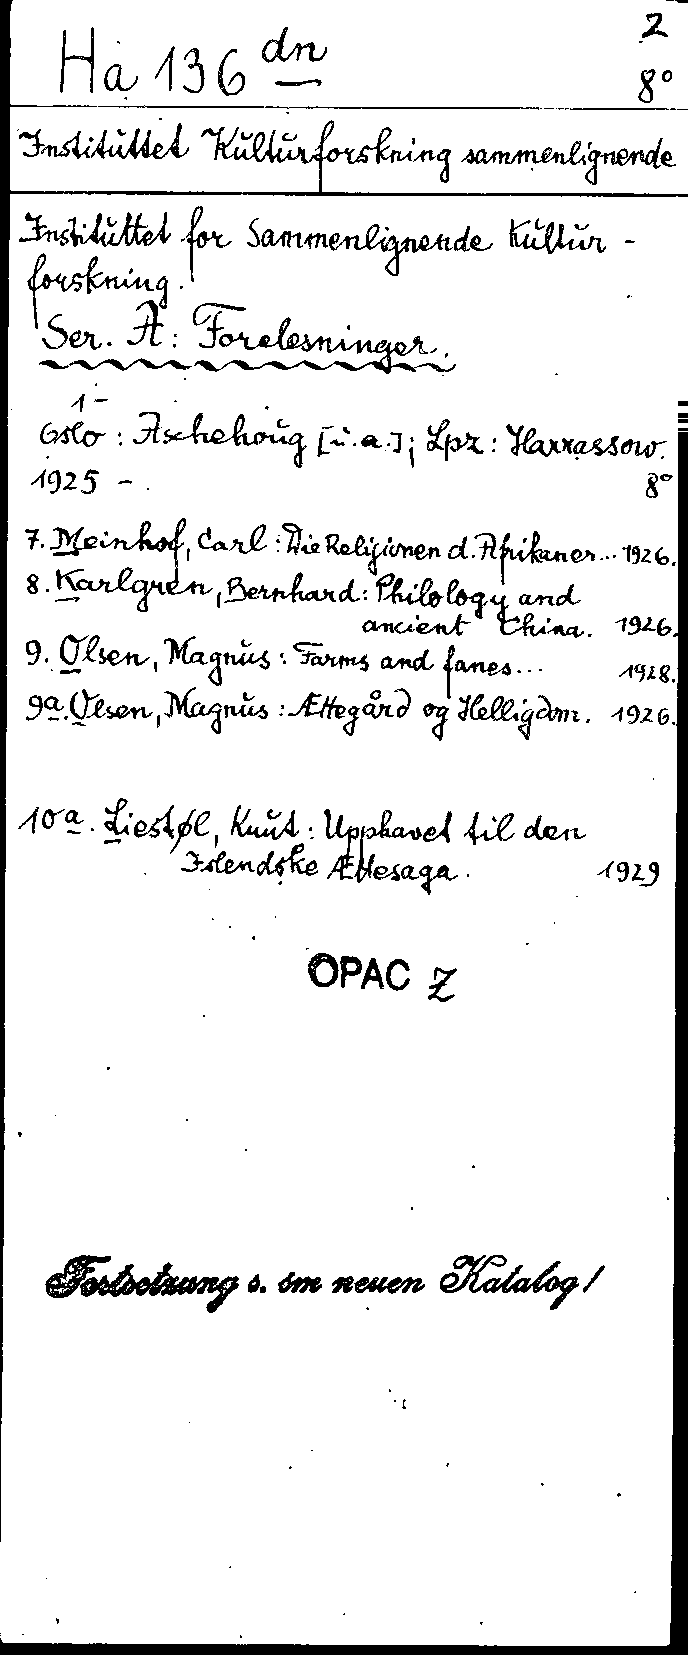 2
Ha 136 dn
8°
Instituttet Kulturforskning sammenlignende
Instituttet for Sammenlignende Kultur-
forskning.
Ser. A: Forelesninger.
1-
Oslo: Aschehoug [u.a.]; Lpz: Harrassow.
1925 - . 8°
7. Meinhof, Carl: Die Religionen d. Afrikaner... 1926.
8. Karlgren, Bernhard: Philology and
ancient China. 1926.
9. Olsen, Magnus: Farms and fanes... 1928.
9a. Olsen, Magnus: Ættegård og Helligdom. 1926.
10a. Liestøl, Knut: Upphavet til den
Islendske Ættesaga. 1929
OPAC Z
Fortsetzung s. im neuen Katalog!